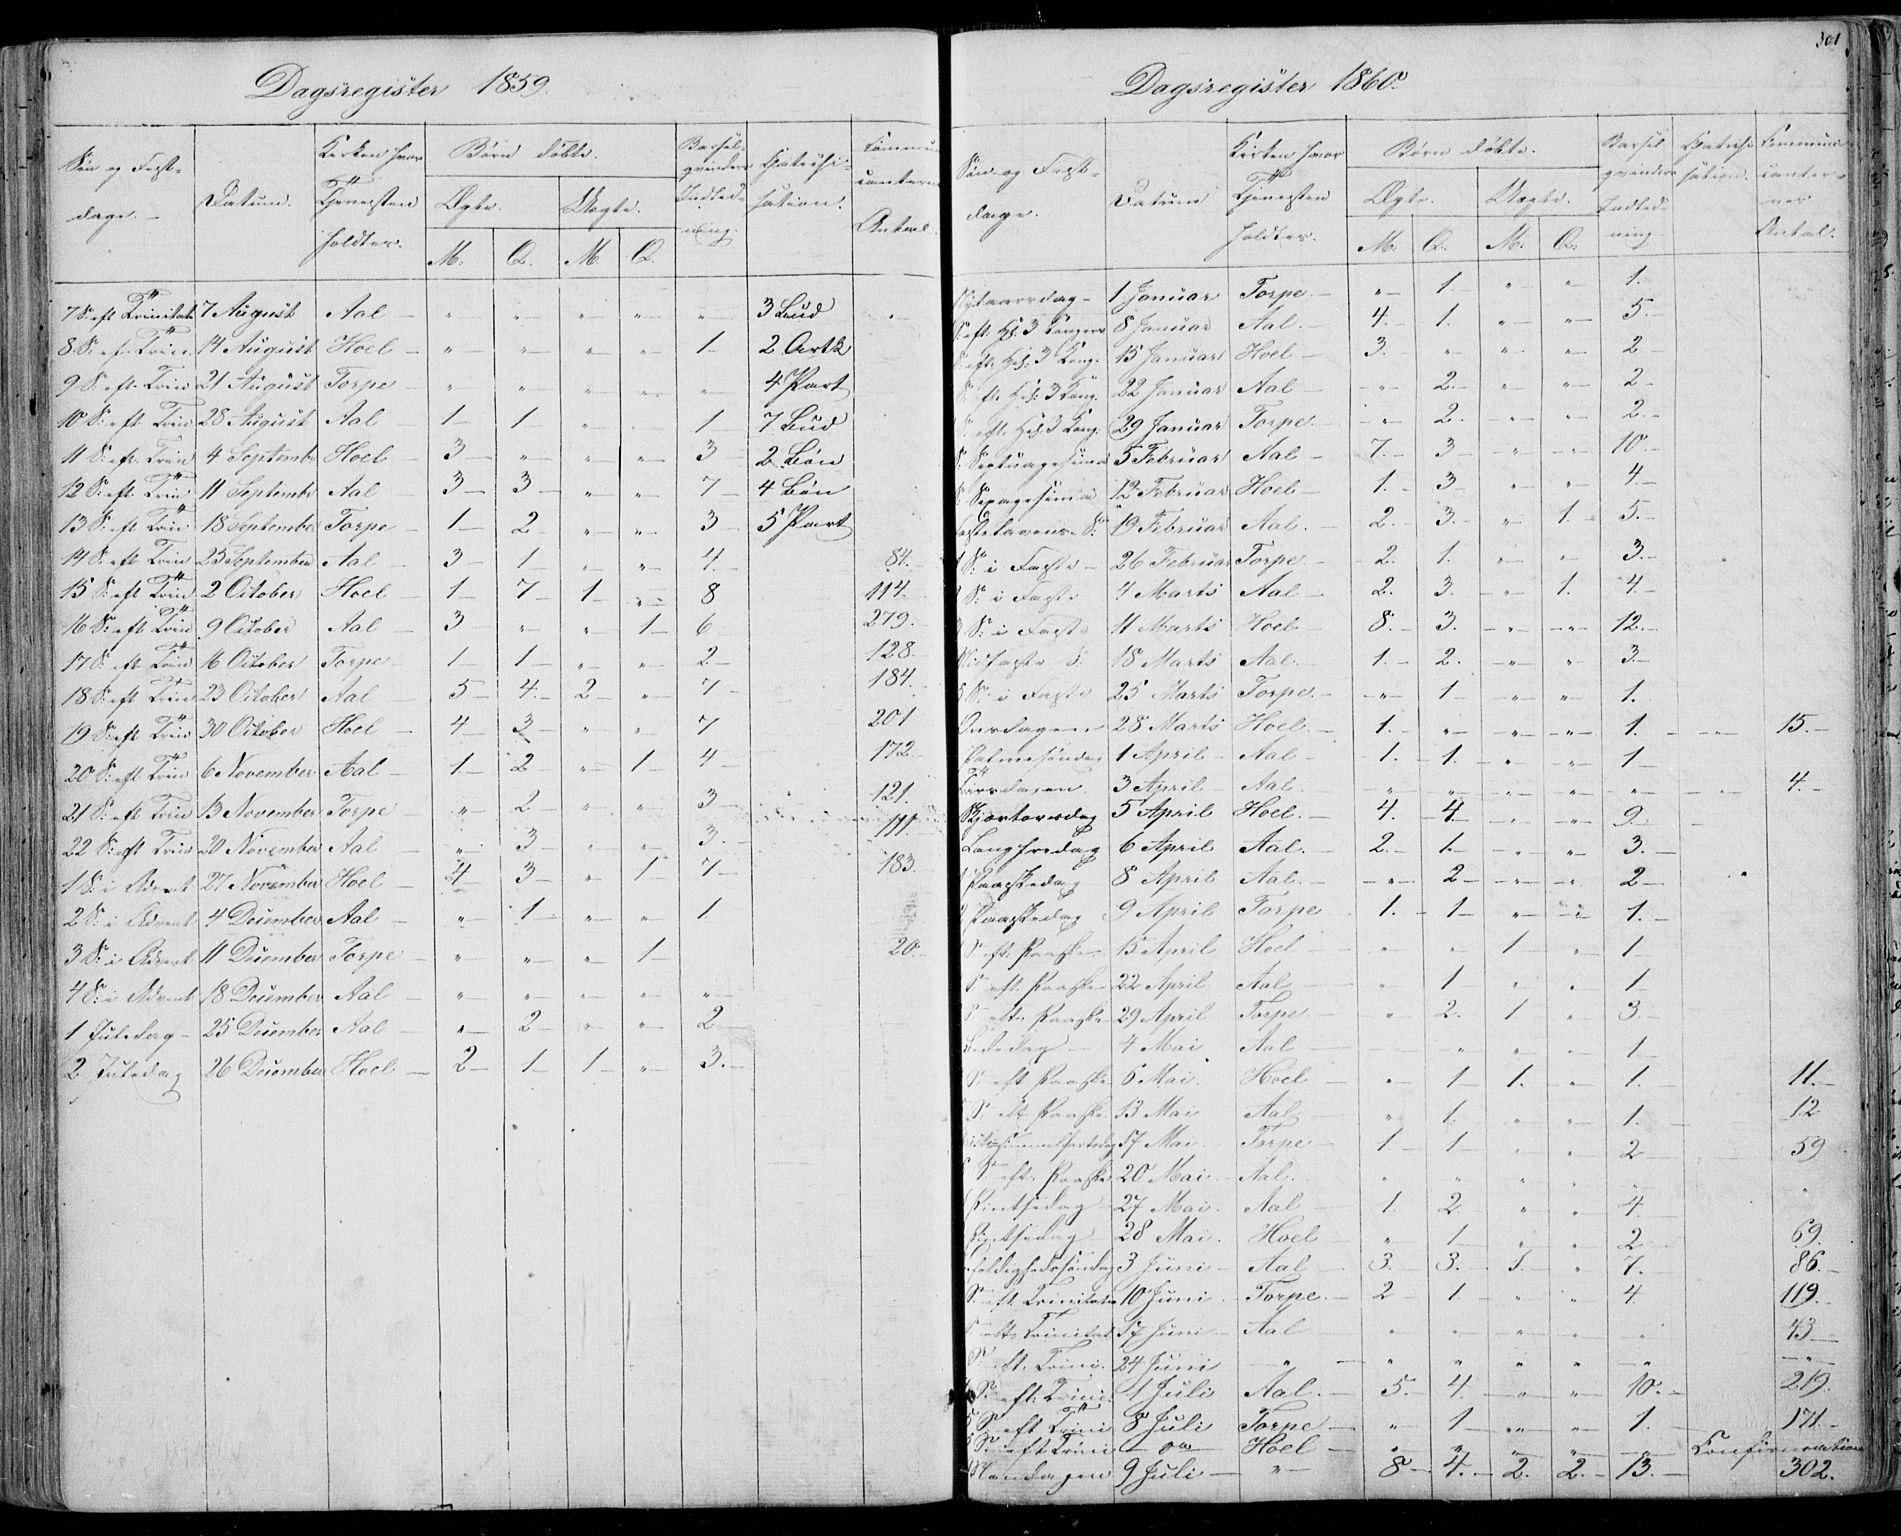 301
Dagsregister 1859.
Søn og Fest-
dage. –
Datum.
Kirken hvor
Tjenesten
holdtes.
Børn døbte.
Ægte. Uægte.
M. Q. M. Q.
Barsel-
qvinders
Indled-
ning.
Catechi-
sation.
Commu-
canternes
Antal.
7 S. eft. Trinitat. 7 August Aal – " " " " " 3 Bud "
8 S. eft. Trin. 14 August Hoel – " " " " 1 2 Artk
9 S. eft. Trin 21 August Torpe – " " " " " 4 Part
10 S. eft. Trin 28 August Aal – 1 1 " " 1 7 Bud
11 S. eft. Trin 4 Septembr Hoel – 3 " " " 3 2 Bøn
12 S. eft. Trin 11 Septembr Aal – 3 3 " " 7 4 Bøn
13 S. eft. Trin 18 September Torpe – 1 2 " " 3 5 Part
14 S. eft. Trin 25 September Aal – 3 1 " " 4. 84.
15 S. eft Trin 2 October Hoel – 1 7 1 " 8 114.
16 S. eft Trin 9 October Aal – 3 " " 1 6 279.
17 S. eft Trin 16 October Torpe – 1 1 " " 2 128.
18 S. eft Trin 23 October Aal – 5 4 2 " 7 184.
19 S. eft Trin 30 October Hoel – 4 3 " " 7 201
20 S. eft Trin 6 November Aal – 1 2 " 1 4 172
21 S. eft Trin 13 November Torpe – " 2 " " 3 121.
22 S. eft Trin 20 November Aal – " 3 " " 3. 111.
1 S. i Advent 27 November Hoel – 4 3 " 1 7 183.
2 S. i Advent 4 December Aal – " 1 " " 1
3 S. i Advent 11 December Torpe – " " " 1 20.
4 S. i Advent 18 December Aal – " " " " "
1 Juledag – 25 December Aal – " 2 " " 2
2 Juledag 26 December Hoel – 2 1 1 " 3.
Dagsregister 1860.
Søn- og Fest-
dage.
Datum
Kirken hvor
Tjenesten
holdtes.
Børn døbte.
Ægte. Uægte.
M. Q. M. Q.
Barsel
qvinders
Indled-
ning.
Catechi-
sation.
Communi-
canter-
nes
Antal.
Nytaarsdag – 1 Januar Torpe. – " 1 " " 1.
S. eft. H. 3 Kongers 8 Januar Aal. – 4. 1. " " 5.
S. eft. Hel. 3 Kong. 15 Januar Hoel – 3. " " " 2
S. eft. Hel. 3 Kong. 22 Januar Aal – " 2. " " 2
S. eft. Hel. 3 Kong. 29 Januar Torpe. – " 2. " " 2.
S. Septuagesima 5 Februar Aal – 7. 3 " " 10.
S. Sexagesima 12 Februar Hoel – 1. 3 " " 4.
Fastelavens-S. 19 Februar Aal. – 2. 3. " 1. 5.
S. i Faste – 26 Februar Torpe. – 2. 1. " " 3.
S. i Faste 4 Marts Aal – 2. 3. " 1. 4.
3 S. i Faste 11 Marts Hoel 8. 3. " " 12.
Midfaste S. 18 Marts Aal. 1. 2. " " 3.
5 S. i Faste 25 Marts Torpe. – " 1 " " 1.
Onsdagen 28 Marts Hoel. 1. " " " 1. 15.
Palmesøndag 1 April Aal – 1. 1. " " 1
Tirsdagen 3 April Aal – " " " " " 4.
Skjærtorsdag 5 April Hoel. – 4. 4. " " 9.
Langfredag 6 April Aal. – 2. 1. " " 3.
Paaskedag 8 April Aal. – " 2 " " 2
Paaskedag 9 April Torpe – 1. 1 " " 1.
S. eft. Paaske 15 April Hoel – " " 1 " 1
S. eft. Paaske 22 April Aal – " 1 " " 1
S. eft. Paaske 29 April Torpe. – " 2. 1. " 3.
Bededag – 4 Mai Aal – " " " 1
S. eft. Paaske 6 Mai. Hoel – " 1 1. " 1. 11.
S. eft Paaske 13 Mai Aal – " 1. " " 1. 12
Himmelfartsdag 17 Mai Torpe – 1. 1 " " 2 59
S. eft. Paaske 20 Mai Aal. " " " " " "
Pintsedag 27 Mai. Aal – 1. 2. " " 4.
Pintsedag 28 Mai. Hoel – " 1 " " 2 69.
Trefoldighedssøndag 3 Juni – Aal – 3. 3. 1. " 7. 86.
S. eft. Trinitatis 10 Juni. Torpe. – 2 1. " " 4. 119.
S. eft. Trinitat. 17 Juni – Aal – " " " " " 43
S. eft. Trini. 24 Juni – " – " " " " " "
S. eft. Trini. 1 Juli Aal. – 5. 4. " " 10. 219.
S. eft Trini 8 Juli Torpe – " 1 " " 1. 171.
S. eft Trini – " – Hoel – " " " " " Confirmation
Mandagen 9 Juli – " 8 4. 2. 2. 13. 302.